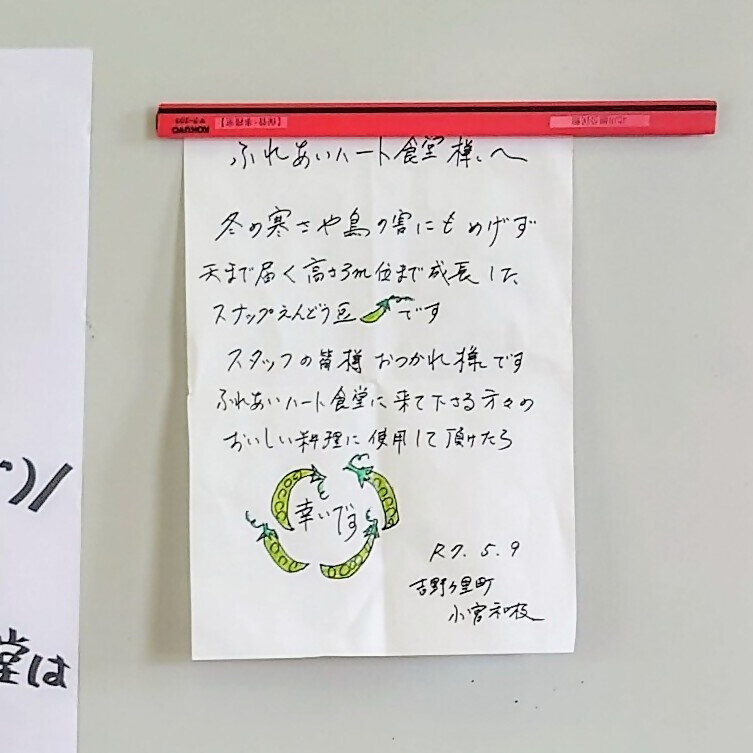 KOKUYO
ふれあいハート食堂様へ
冬の寒さや鳥の害にもめげず
天まで届く高さ
位まで成長した
スナップえんどう豆です
スタッフの皆様おつかれ様です
ふれあいハート食堂に来て下さる方々の
おいしい料理に使用して頂けたら
幸いです
R7.5.9
吉野ヶ里町
小宮和枝
堂は